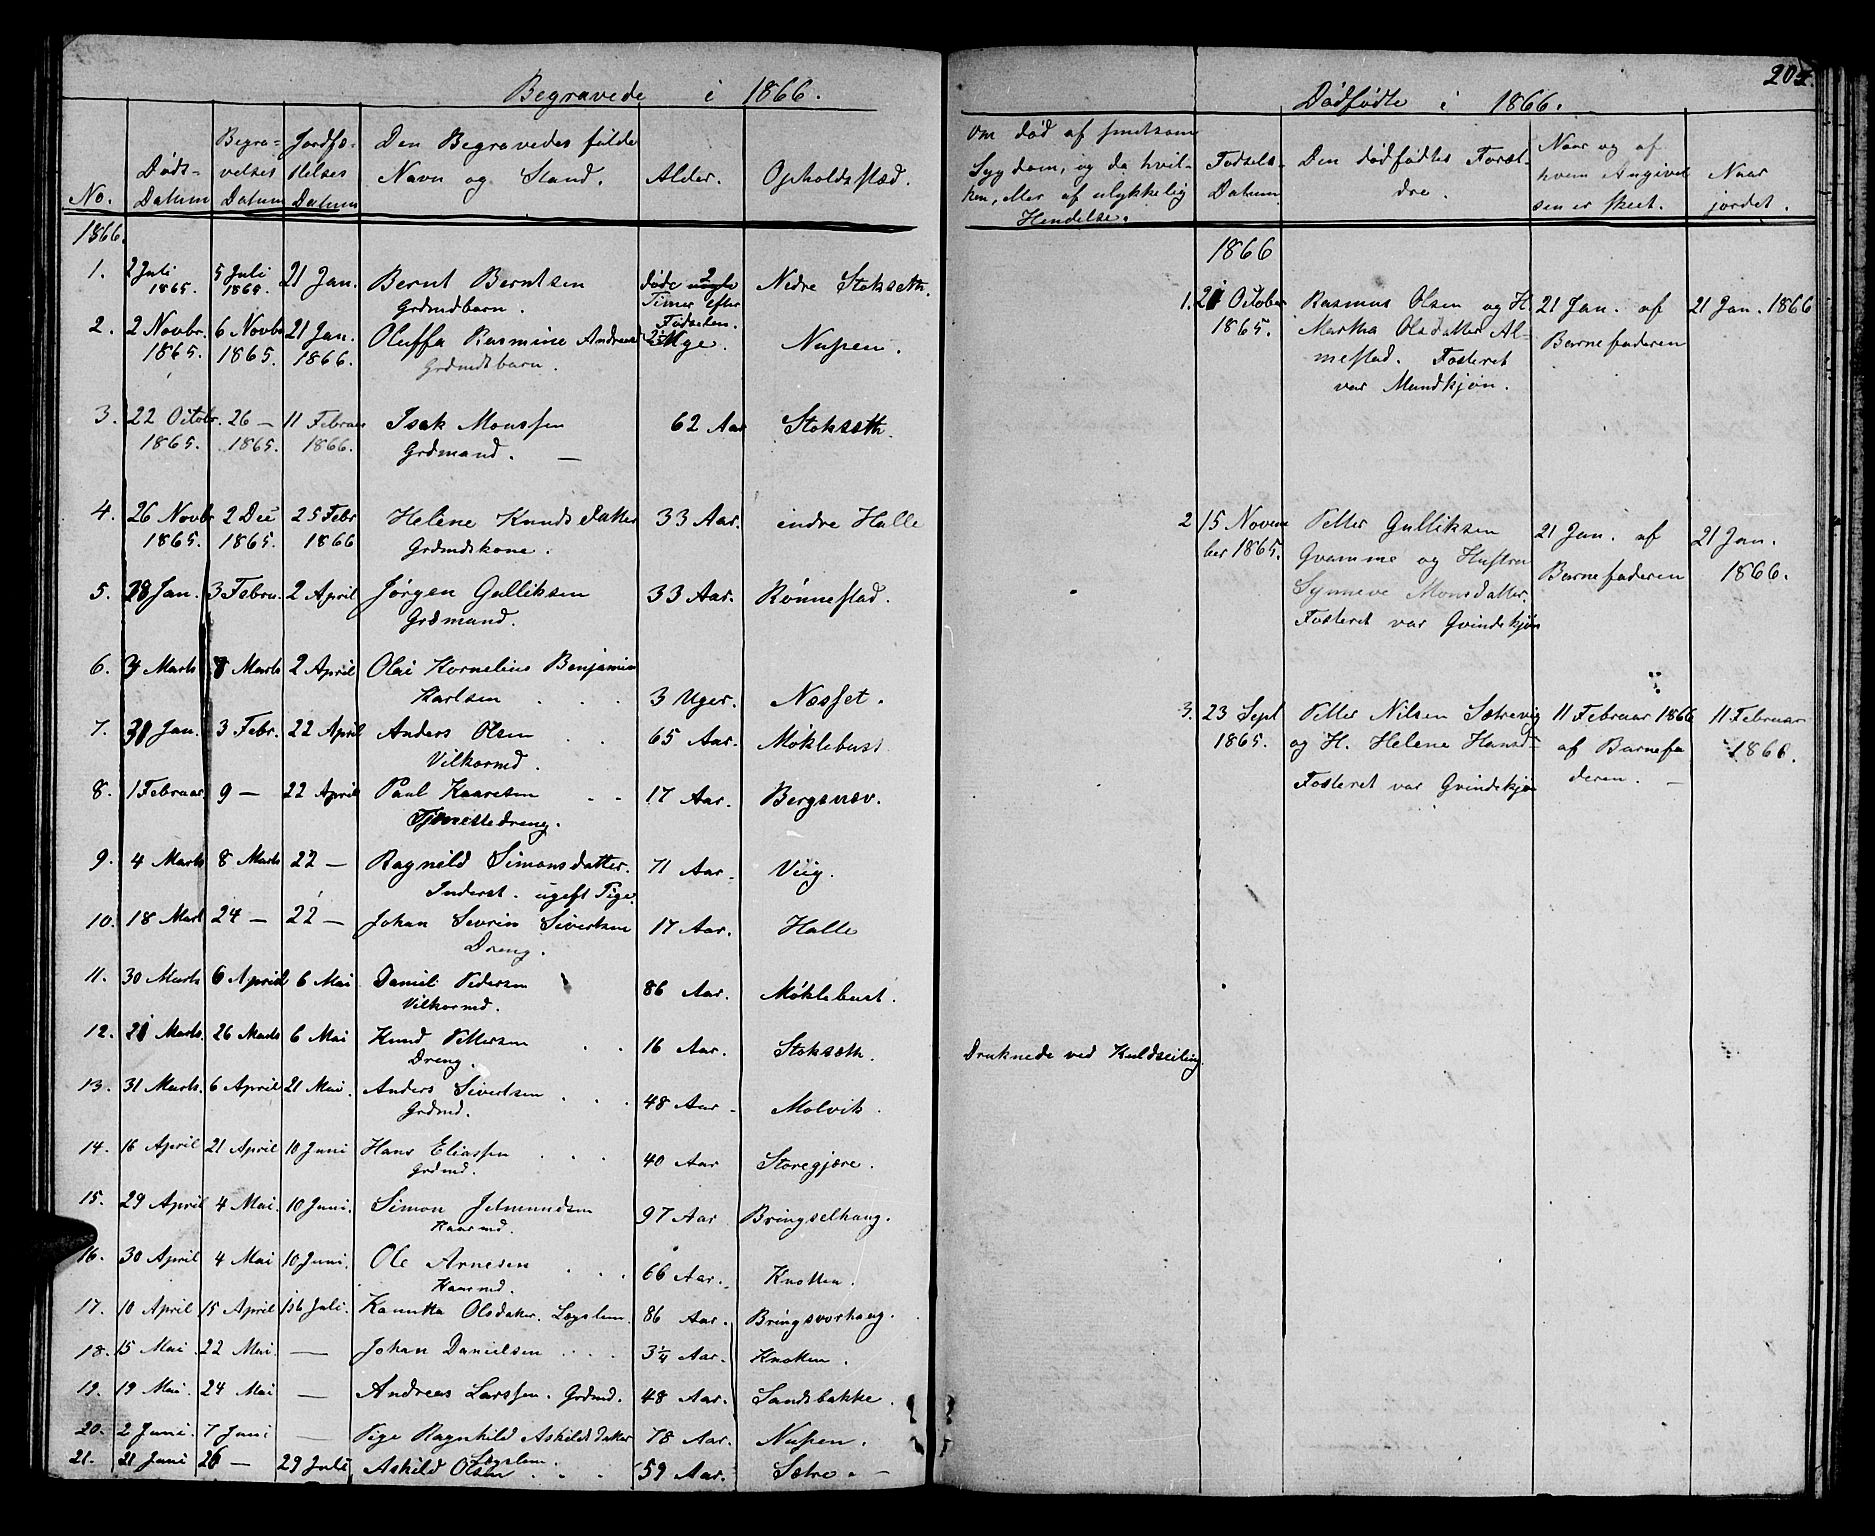 204.
Begravede i 1866.
No.
Døds-
Datum
Begra-
velses
Datum
Jordfæ-
stelses
Datum
Den Begravedes fulde
Navn og Stand.
Alder.
Opholdsstæd.
Om død af smitsom
Sygdom, og da hvil-
ken, eller af ulykkelig
Hendelse.
1866.
1. 2 Juli 5 Juli 21 Jan. Bernt Berntsen døde 2 Nedre Stoksæth.
1865. 1865. Grdmdbarn. Timer efter
Fødselen.
2. 2 Novbr. 6 Novbr 21 Jan. Oluffa Rasmine Uge. Nupen.
1865. 1865. 1866. Grdmdsbarn.
3. 22 Octobr. 26 — 11 Februar Isak Monssen 62 Aar Stoksæth.
1865. 1865. 1866. Grdmand. —
4. 26 Novbr 2 Dec 25 Febr Helene Knudsdatter 33 Aar. indre Halle
1865. 1865. 1866 Grdmdskone.
5. 28 Jan. 3 Febru. 2 April Jørgen Gulliksen 33 Aar. Rønnestad.
Grdmand.
6. Marts 8 Marts 2 April Olai Kornelius Benjamin
Karlsen . . . 3 Uger. Næsset.
7. Jan. 3 Febr. 22 April Anders Olsen . . 65 Aar. Møklebust
Vilkormd.
8. 1 Februar 9 — 22 April Paul Kaaresen . . 17 Aar. Bergsnæv.
Tjenestedreng.
9. 4 Marts 8 Marts 22 — Ragnild Simonsdatter. 71 Aar. Viig.
Inderst. ugift Pige.
10. 18 Mart 24 — 22 — Johan Sevrin Sivertsen 17 Aar. Halle
Dreng.
11. 30 Marts 6 April 6 Mai Daniel Pedersen 86 Aar. Møklebust.
Vilkormd.
12. 21 Marts. 26 Marts 6 Mai Knud Pettersen . . 16 Aar. Stoksæth. Druknede ved Kuldseiling.
Dreng.
13. 31 Marts. 6 April 21 Mai. Anders Sivertsen . . . 48 Aar. Molvik.
Grdmd.
14. 16 April 21 April 10 Juni Hans Eliassen . . . 40 Aar Storegjære.
Grdmd.
15. 29 April 4 Mai. 10 Juni. Simon Jetmundsen 97 Aar Bringselhaug.
Kaarmd.
16. 30 April 4 Mai 10 Juni. Ole Arnesen . . . 66 Aar. Knotten.
Kaarmd.
17. 10 April 15 April Juli. Olsdatter. Lægslem. 86 Aar. Bringsvorhaug.
18. 15 Mai. 22 Mai. — Johan Danielsen . . . . 3¼ Aar. Knotten.
19. 19 Mai. 24 Mai — Andreas Larssen. Grdmd. 48 Aar. Sandsbakke.
20. 2 Juni. 7 Juni — Pige Ragnhild Askildsdatter 78 Aar. Nupen.
Lægslem.
21. 21 Juni 26 — 29 Juli Askild Olsen . . . 59 Aar Sætre. —
Dødfødte i 1866.
Fødsels-
Datum
Den dødfødtes Foræl-
dre.
Naar og af
hvem Angivel
sen er skeet.
Naar
jordet.
1866
1. 21 October Rasmus Olsen og H. 21 Jan. af 21 Jan. 1866
1865. Martha Olsdatter Al- Barnefaderen
mestad. Fosteret
var Mandkjøn.
2 15 Novem Petter Gulliksen 21 Jan. af 21 Jan.
ber 1865. Gvamme og Hustru Barnefaderen 1866.
Synneve Monsdatter.
Fosteret var Qvindekjøn
3. 23 Sept Petter Nilsen Sætrevig 11 Februar 1866 11 Februar
1865. og H. Helene Hansd- af Barnefa 1866.
Fosteret var Qvindekjøn deren. —